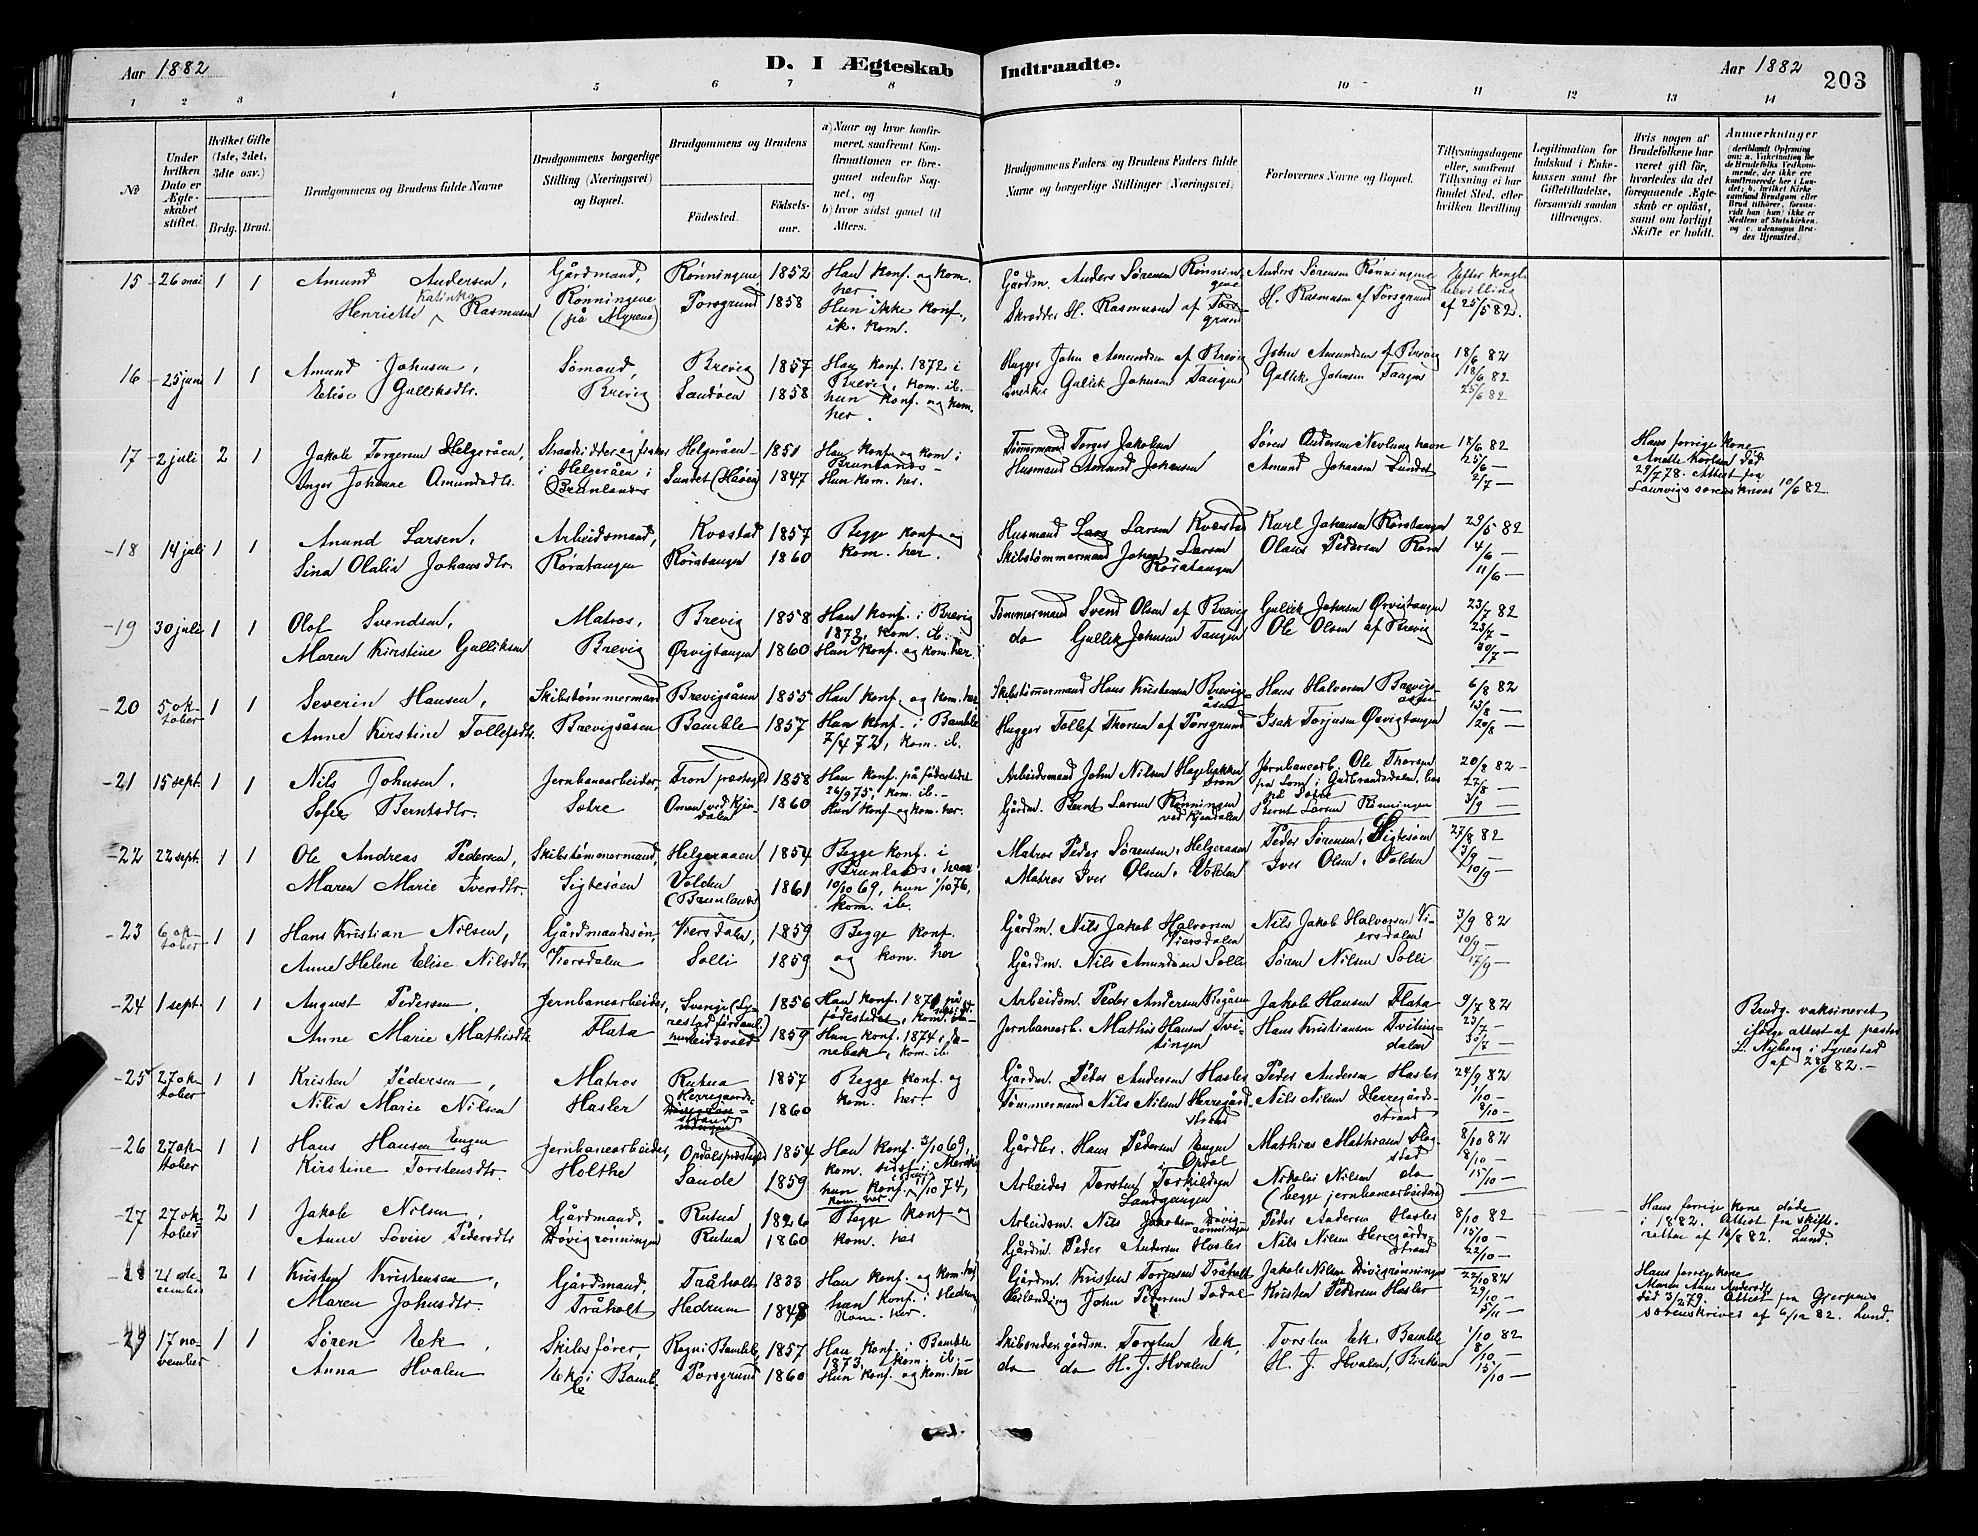 Aar 1882
D. I Ægteskab Indtraadte.
Aar 1882
203
1 2 3 4 5 6 7 8 9 10 11 12 13 14
No
Under hvilken Dato er Ægteskabet stiftet.
Hvilket Gifte (1ste, 2det, 3die osv.)
Brdg. Brud.
Brudgommens og Brudens fulde Navne
Brudgommens borgerlige Stilling (Næringsvei) og Bopæl.
Brudgommens og Brudens
Fødested.
Fødselsaar.
a) Naar og hvor konfirmeret, samt om Konfirmationen er foregaaet udenfor Sognet, og
b) hvor sidst gaaet til Alters.
Brudgommens Faders og Brudens Faders fulde Navne og borgerlige Stillinger (Næringsvei)
Forlovernes Navne og Bopæl.
Tillysningsdagene eller, saafremt Tillysning ei har fundet Sted, efter hvilken Bevilling
Legitimation for Indskud i Enkekassen samt for Giftetilladelse, forsaavidt saadan tiltrænges.
Hvis nogen af Brudefolkene har været gift før, hvorledes da det foregaaende Ægteskab er opløst, samt om lovligt Skifte er holdt.
Anmærkninger
15 26 mai 1 1 Amund Andersen, Gårdmand, Rønningene 1852 Han konf. og kom. her Gårdm. Anders Sørensen Rønningene Anders Sørensen Rønningene Efter kongl. bevilling
Henriette Katinka Rasmusen Rønningene (på Myrene) Porsgrund 1858 Hun ikke konf., ik. kom. Skrædder H. Rasmusen af Porsgrund H. Rasmusen af Porsgrund af 25/5 82.
16 25 juni 1 1 Amund Johnsen, Sømand, Brevig 1857 Han konf. 1872 i Brevig, kom. ib. Hugger John Amundsen af Brevig John Amundsen af Brevig 18/6 82
Elise Galliksdtr. Brevig Sandøen 1858 hun konf. og kom. her. Gallik Johnsen Tangen Gallik Johnsen Tangen 18/6 82 25/6 82
17 2 juli 2 1 Jakob Torgersen Helgeråen, Helgeråen 1851 Han konf. og kom i Brunlanes Tømmermand Torger Jakobsen Søren Andersen Nevlunghavn 18/6 82 Hans forrige kone
Inger Johanne Amundsdtr. i Helgeråen i Brunlanes Lundet (Håøen) 1847 Hun kom. her. Husmand Amund Johansen Amund Johansen Lundet 25/6 — 2/7 — Anette Karlsen død 29/7 78. Attest fra Laurvigs sorenskriver 10/6 82.
18 14 juli 1 1 Anund Larsen, Arbeidsmand, Kvæstad 1857 Begge konf. og kom. her. Husmand Lars Larsen Kvæstad Karl Johansen Røratangen 29/5 82
Sina Olalia Johansdtr. Røratangen Røratangen 1860 Skibstømmermand Johan Larsen Røratangen Olaus Pedersen Rørn 4/6 — 11/6 —
19 30 juli 1 1 Olof Svendsen, Matros, Brevig 1858 Han konf. i Brevig 1873, kom. ib. Tømmermand Svend Olsen af Brevig Gullik Johnsen Ørvigtangen 23/7 82
Maren Kirstine Galliksen Brevig Ørvigtangen 1860 Hun konf. og kom. her. do Gullik Johnsen Tangen Ole Olsen af Brevig 23/7 — 30/7 —
20 5 oktober 1 1 Severin Hansen, Skibstømmermand Brevigsåsen 1855 Han konf. og kom. her Skibstømmermand Hans Kristensen Brevigsåsen Hans Halvorsen Brevigsåsen 6/8 82
Anne Kirstine Tollefsdtr. Brevigsåsen Bamble 1857 Hun konf. i Bamble 7/4 72, kom. ib. Hugger Tollef Thorsen af Porsgrund Isak Torjusen Ørvigtangen 13/8 — 20/8 —
21 15 sept. 1 1 Nils Johnsen, Jernbanearbeider, Tron præstegj. 1858 Han konf. på fødestedet 26/9 75, kom. ib. Arbeidsmand John Nilsen Hagebakken Tron Jernbanearb. Ole Thorsen fra Lom i Gudbrandsdalen, bor på Sotre 20/8 82
Sofie Berntsdtr. Sotre Omen ved Kjendalen 1860 Hun konf. og kom. her. Gårdm. Bernt Larsen Rønningen ved Kjendalen Bernt Larsen Rønningen 27/8 — 3/9 —
22 22 sept. 1 1 Ole Andreas Pedersen, Skibstømmermand, Helgeraaen 1854 Begge konf. i Brunlanes, han Matros Peder Sørensen, Helgeraaen Peder Sørensen, Sigtesøen 27/8 82
Maren Marie Iversdtr. Sigtesøen Volden (Brunlanes) 1861 10/10 69, hun 1/10 76, kom. ib. Matros Iver Olsen, Volden Iver Olsen, Volden 3/9 — 10/9 —
23 6 oktober 1 1 Hans Kristian Nilsen, Gårdmandssøn, Viersdalen, 1859 Begge konf. og kom. her Gårdm. Nils Jakob Halvorsen Viersdalen Nils Jakob Halvorsen Viersdalen 3/9 82
Anne Helene Elise Nilsdtr. Viersdalen Solli 1859 Gårdm. Nils Amundsen Solli Søren Nilsen Solli 10/9 — 17/9 —
24 1 sept. 1 1 August Pedersen, Jernbanearbeider, Sverige (Lyrestad 1856 Han konf. 1871 på fødestedet, kom. Arbeidsm. Peder Andersen Jakob Hansen Flata 9/7 82 Brudg. vaksineret
Anne Marie Mathisdtr. Flata hun Eidsvold 1859 Hun konf. 1874 i kom. ib. Jernbanearb. Mathis Hansen Tvitingen Hans Kristiansen Tvitingdalen 23/7 — 30/7 — ifølge attest af pastor L. Nyberg i Lyrestad af 28/6 82. —
25 27 oktober 1 1 Kristen Pedersen, Matros Rutua 1857 Begge konf. og kom. her. Gårdm. Peder Andersen Hasler Peder Andersen Hasler 24/9 82
Nilia Marie Nilsen Hasler Herregårdsstrand 1860 Tømmermand Nils Nilsen Herregårdsstrand Nils Nilsen Herregårdsstrand 1/10 — 8/10 —
26 27 oktober 1 1 Hans Hansen Engen Jernbanearbeider, Opdals præstegj. 1854 Han konf. 3/10 69, kom. sidst i Gårdbr. Hans Pedersen Engen Opdal Mathias Mathisen Flogstad 8/10 82
Kirstine Torstensdtr. Holthe Sande 1859 hun konf. 1/10 74, kom. her Arbeider Torsten Torkildsen Landgangen Nikolai Nilsen do (begge jernbanearbeidere) 8/10 — 15/10 —
27 27 oktober 2 1 Jakob Nilsen, Gårdmand, Rutua 1826 Begge konf. og kom. her Arbeidsm. Nils Jakobsen Døvigrønningen Peder Andersen Hasler 8/10 82 Hans forrige kone døde
Anne Lovise Pedersdtr. Døvigrønningen Rutua 1860 Gårdm. Peder Andersen Hasler Nils Nilsen Herregårdsstrand 15/10 — 22/10 — i 1882. Attest fra skifteretten af 16/8 82. Lund.
28 21 december 2 1 Kristen Kristensen, Gårdmand, Tråholt 1833 Han konf. og kom. her Gårdm. Kristen Torjusen Tråholt Jakob Nilsen Døvigrønningen 22/10 82 Hans forrige kone
Maren Johnsdtr. Tråholt Hedrum 1848 hun konf. i Hedrum kom. her. John Pedersen Todal Kristen Pedersen Hasler 29/10 — 5/11 — Maren Anne Andersdtr. død 3/2 79. Attest fra Gjerpens sorenskriver af 6/12 82. Lund.
29 17 november 1 1 Søren Eek, Skibsfører, Rogn i Bamble, 1857 Han konf. i Bamble 1873, kom. ib. Torsten Eek, Torsten Eek, Bamble 1/10 82
Anna Hvalen Eek i Bamble Porsgrund 1860 Hun konf. og kom. her do do H. J. Hvalen H. J. Hvalen, 8/10 — 15/10 —